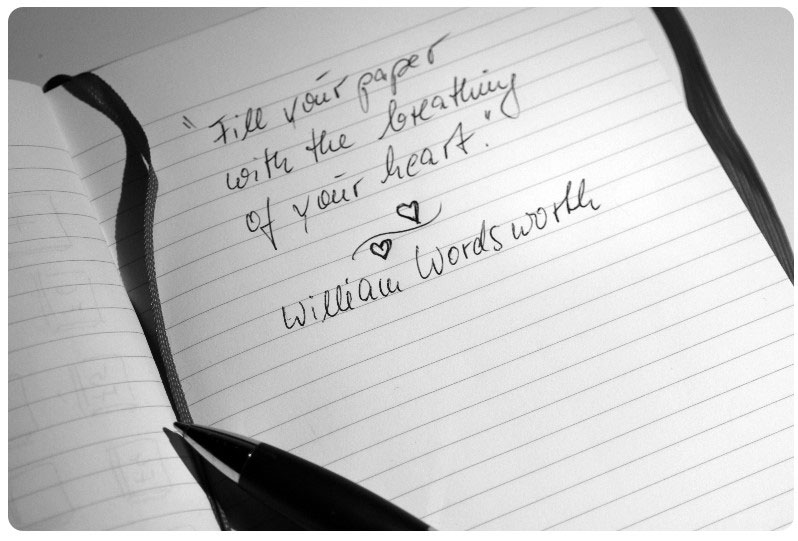 "Fill your paper
with the breathing
of your heart."
William Wordsworth